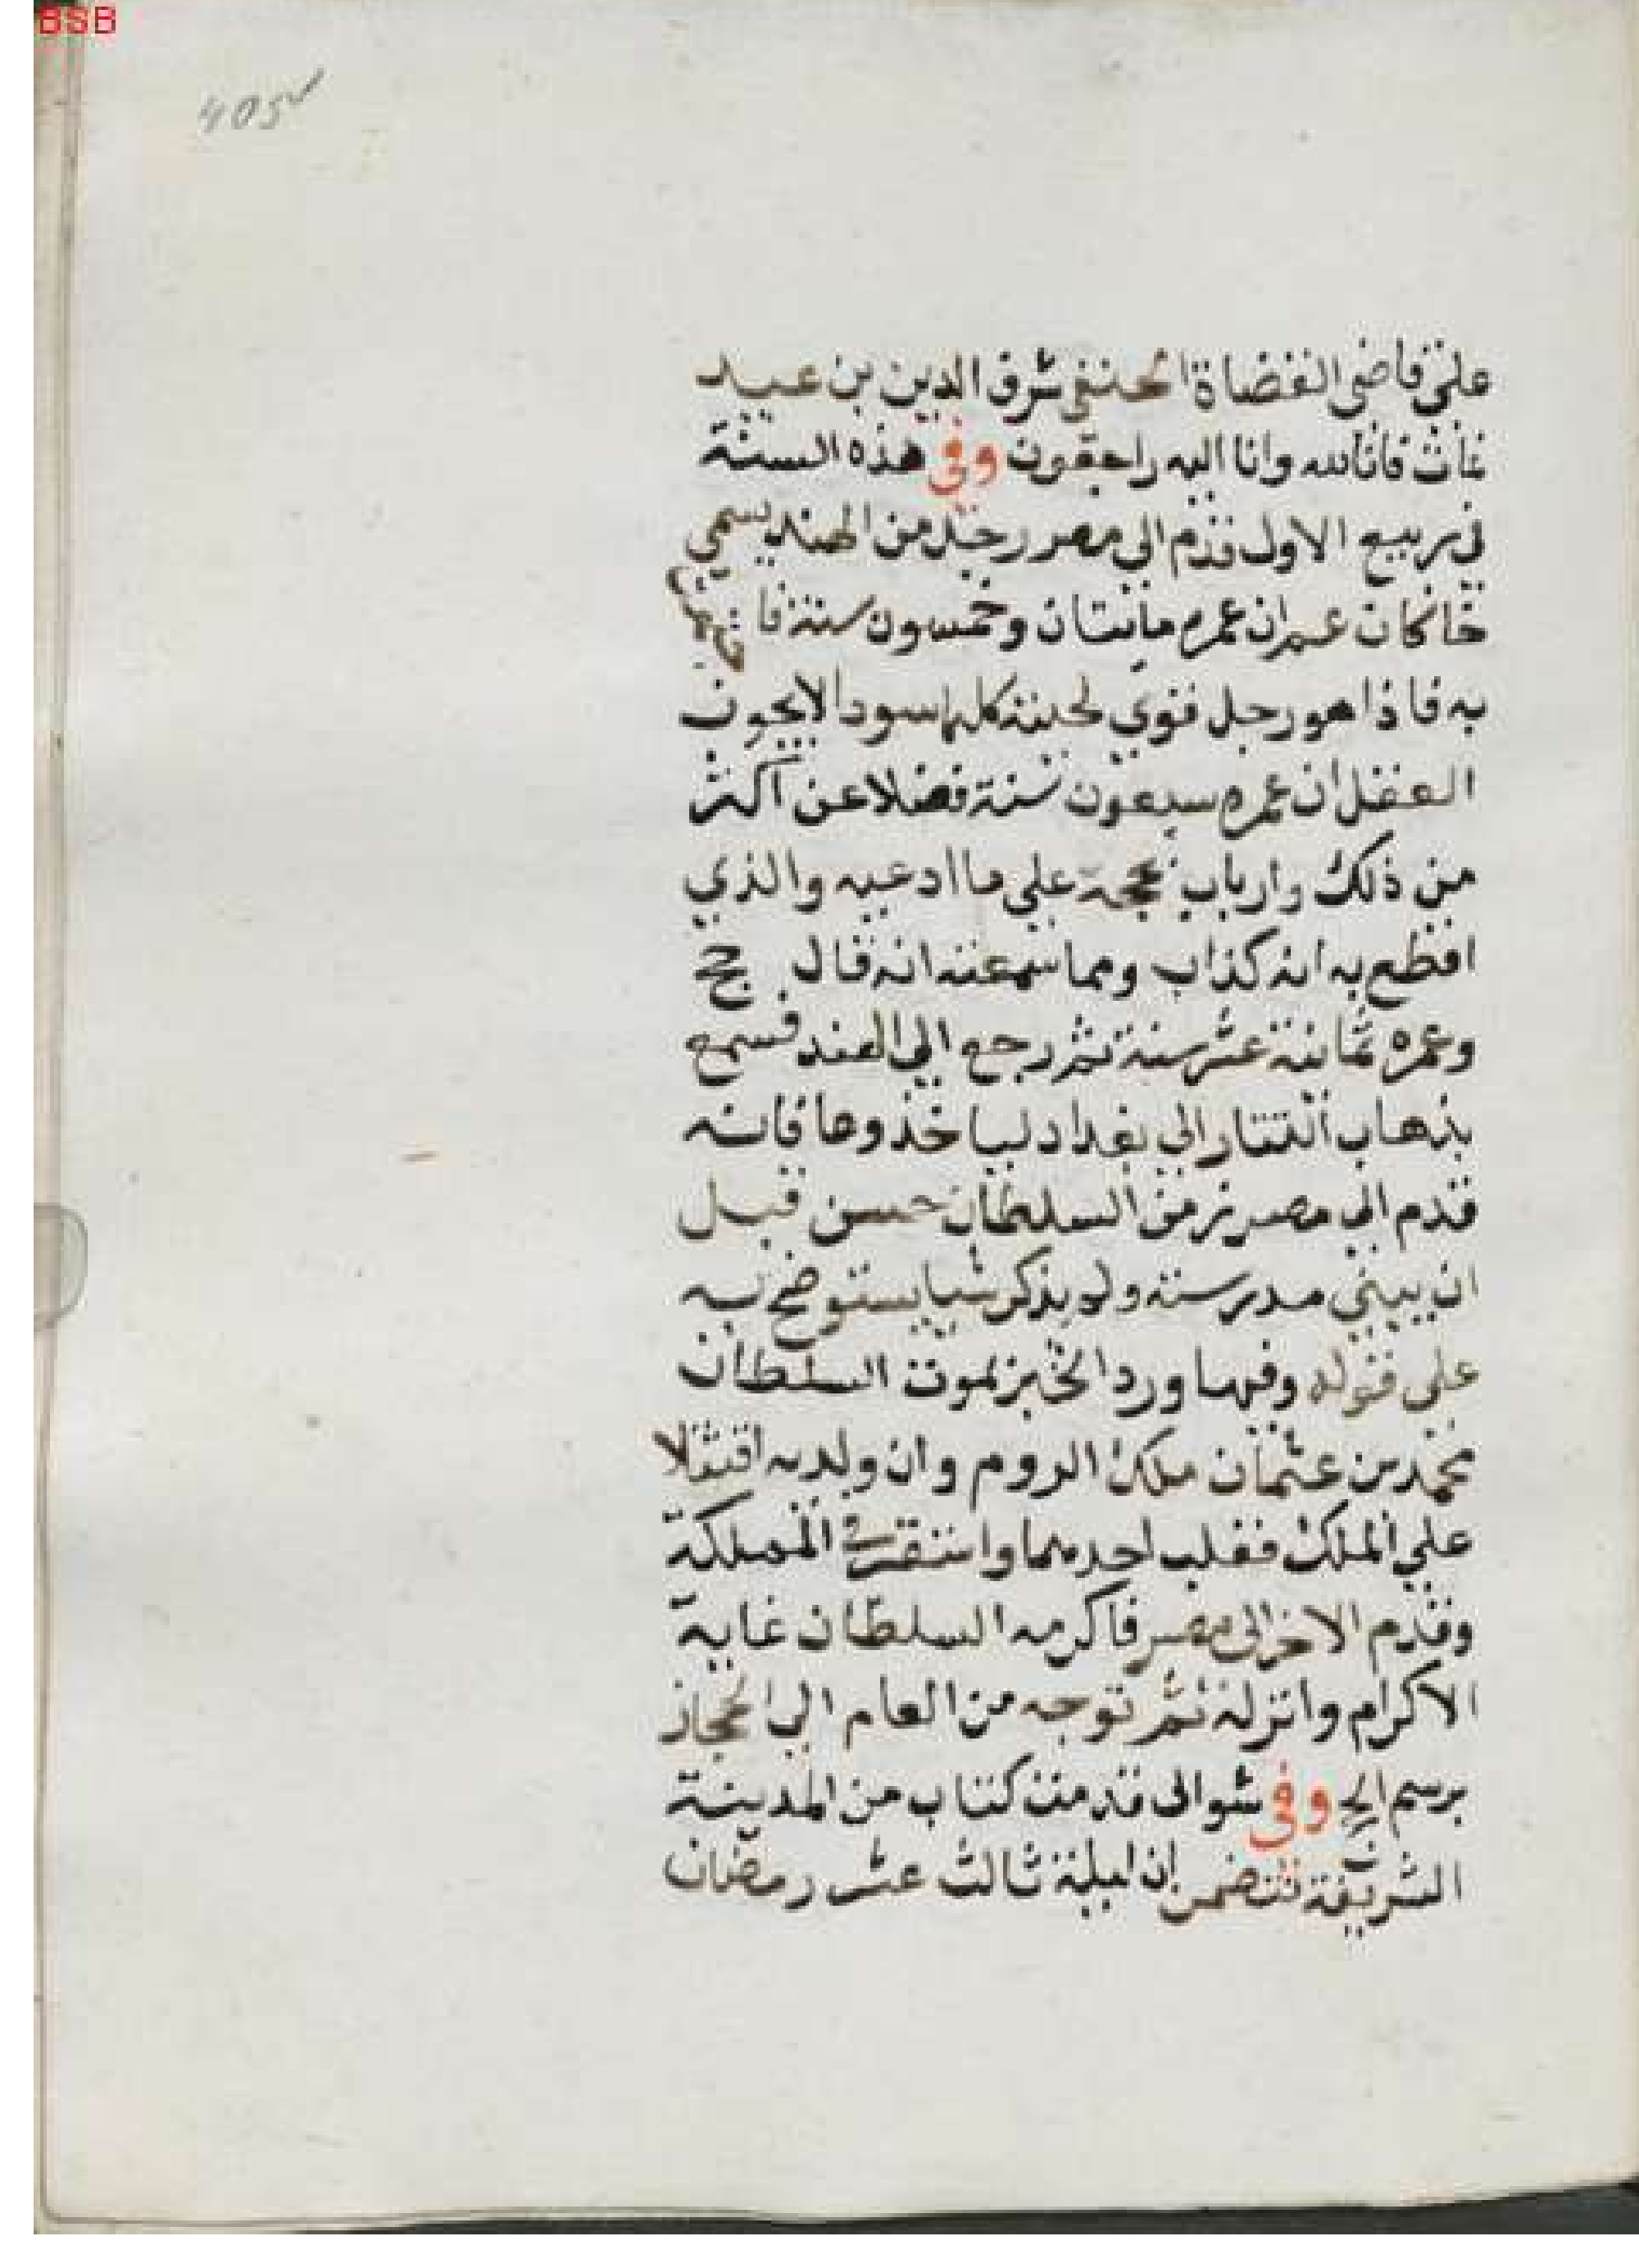 BSB
405v
علي قاضي القضاة الحنفي شرف الدين بن عبيد
فانا لله وانا اليه راجعون وفي هذه السنة
في ربيع الاول قدم الي مصر رجل من الهند يسمي
خاكان عمره مايتان وخمسون سنة
به فاذا هو رجل قوي لحيته كلها سودا لا يجوز
العقل ان عمره سبعون سنة فضلا عن اكثر
من ذلك علي ما ادعيه والذي
اقطع به انه كذاب ومما سمعته انه قال حج
وعمره ثمانية عشر سنة ثم رجع الي الهند فسمع
بذهاب التتار الي بغداد لياخذوها فانه
قدم الي مصر زمن السلطان حسن قبل
ان يبني مدرسته ولم يذكر شيا يستوضح به
علي قوله وفيها ورد الخبر بموت السلطان
محمد بن عثمان ملك الروم وان ولديه اقتتلا
علي الملك فغلب احدهما واستقر في المملكة
وقدم الاخر الى مصر فاكرمه السلطان غاية
الاكرام وانزله ثم توجه من العام الي الحجاز
برسم الحج وفي شوال قدمت كتاب من المدينة
الشريفة تتضمن ان ليلة ثالث عشر رمضان